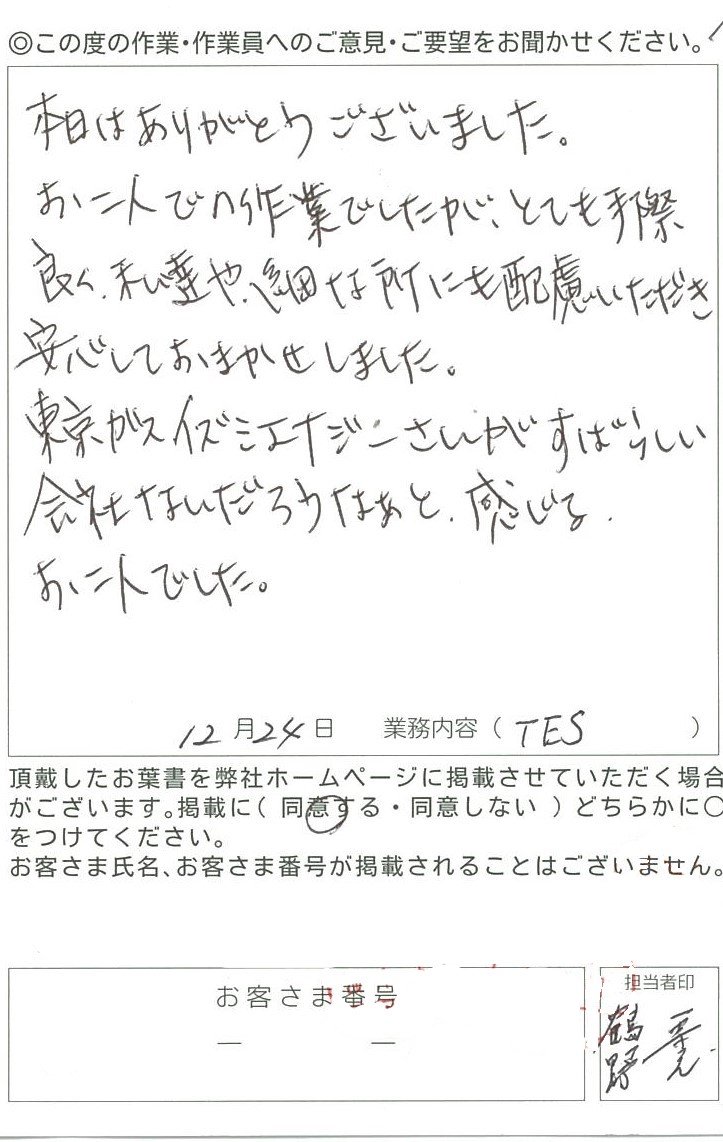 ◎この度の作業・作業員へのご意見・ご要望をお聞かせください。
本日はありがとうございました。
お二人での作業でしたが、とても手際
良く、私達や、細な所にも配慮いただき
安心しておまかせしました。
東京ガスイズミエナジーさんがすばらしい
会社なんだろうなぁと、感じる、
お二人でした。
12月24日 業務内容（TES ）
頂戴したお葉書を弊社ホームページに掲載させていただく場合
がございます。掲載に（ 同意する・同意しない ）どちらかに○
をつけてください。
お客さま氏名、お客さま番号が掲載されることはございません。
お客さま番号
— —
担当者印
鶴野